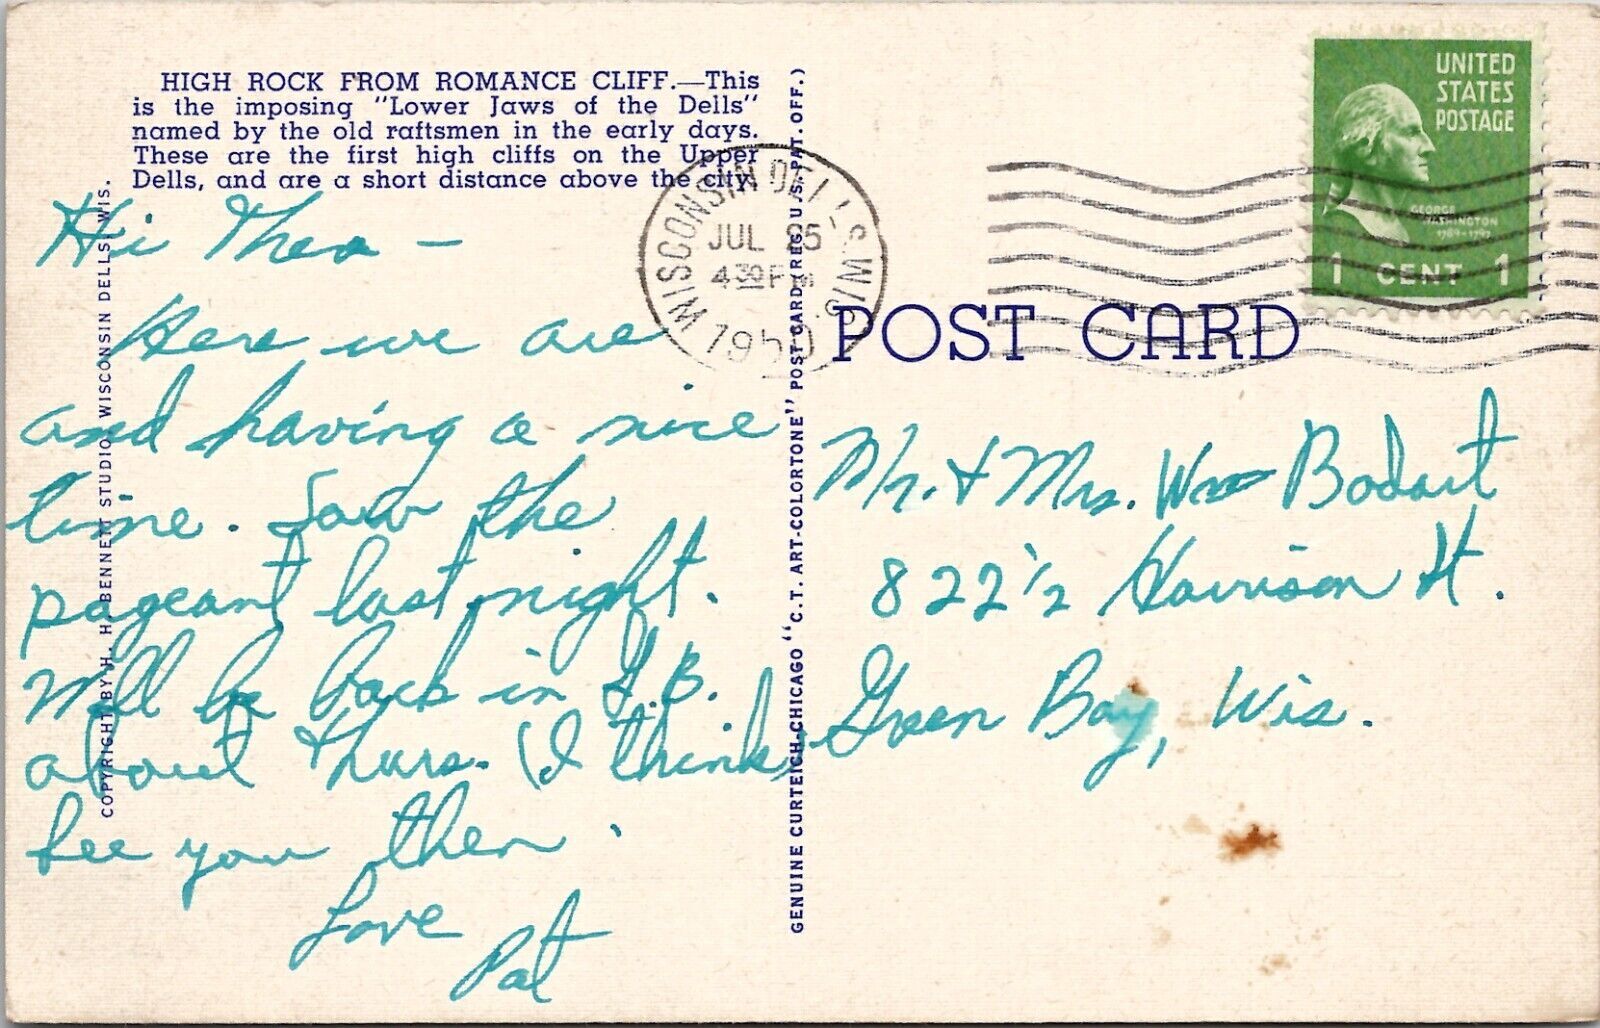 HIGH ROCK FROM ROMANCE CLIFF.—This
is the imposing "Lower Jaws of the Dells"
named by the old raftsmen in the early days.
These are the first high cliffs on the Upper
Dells, and are a short distance above the city.
Hi Thea —
Here we are
and having a nice
time. Saw the
pageant last night.
Will be back in G.B.
about Thurs. (I think)
See you then.
Love
Pat
COPYRIGHT BY H. H. BENNETT STUDIO, WISCONSIN DELLS, WIS.
GENUINE CURTEICH-CHICAGO "C.T. ART-COLORTONE" POST CARD (REG. U.S. PAT. OFF.)
WISCONSIN DELLS WIS.
JUL 25
4 30 PM
1950
UNITED
STATES
POSTAGE
GEORGE
WASHINGTON
1789-1797
1 CENT 1
POST CARD
Mr. & Mrs. Wm Bodart
822 1/2 Harrison St.
Green Bay, Wis.